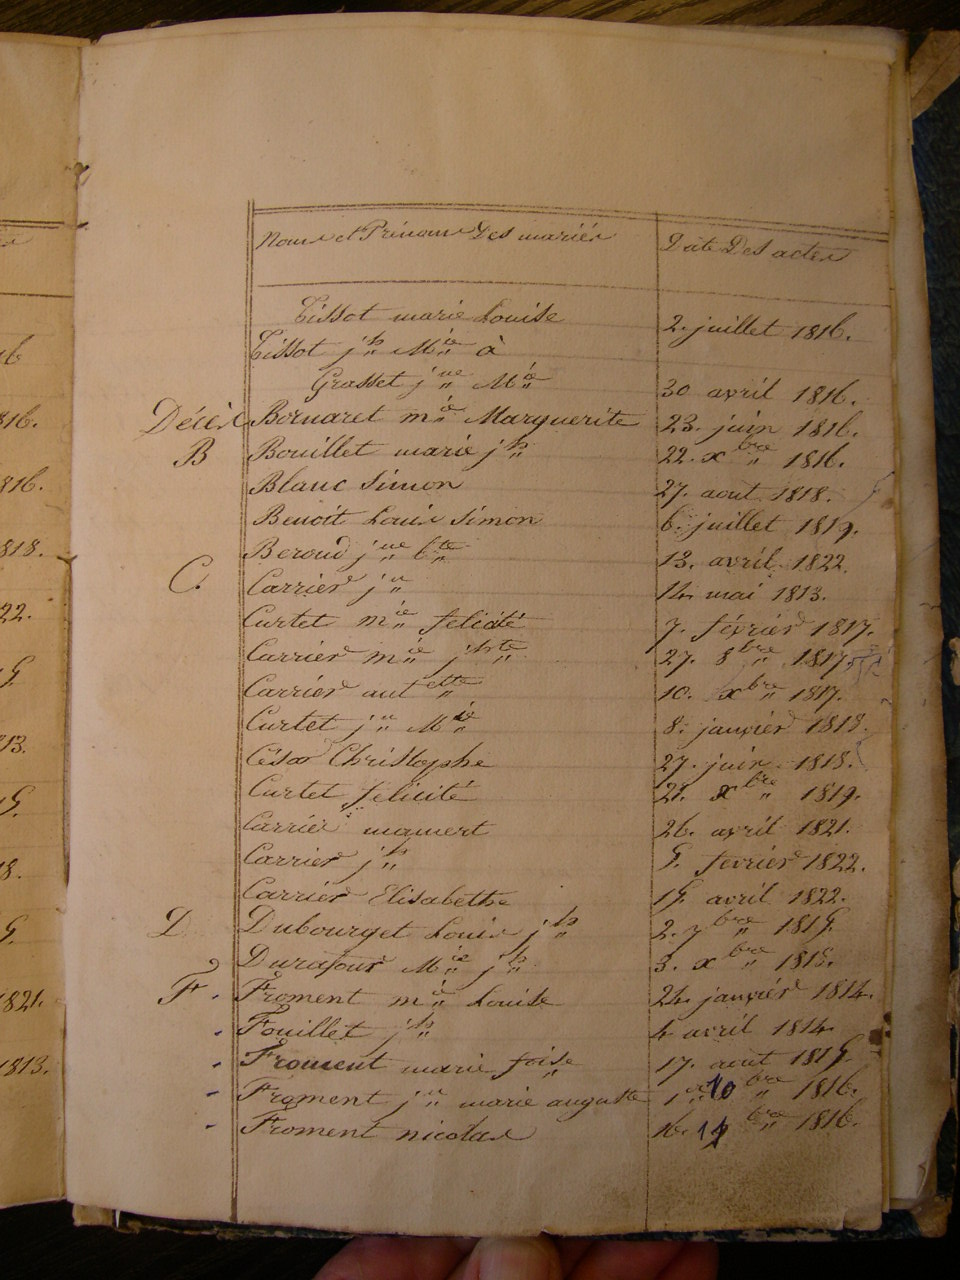 Noms et Prénoms Des mariés Date Des actes
Tissot marie Louise 2. juillet 1816.
Tissot jh Mie à
Grasset jne Mie 30 avril 1816.
Décès Bornaret mie Marguerite 23. juin 1816.
B Bouillet marie jh 22. xbre 1816.
Blanc Simon 27. aout 1818.
Benoit Louis Simon 6. juillet 1819.
Beroud jne bte 13. avril 1822.
C. Carrier jn 14. mai 1813.
Curtet mie felicité 7. février 1817.
Carrier mie jhte 27. 8bre 1817.
Carrier antette 10. xbre 1817.
Curtet jn Mie 8. janvier 1818.
César Christophe 27. juin 1818.
Curtet félicité 21. xbre 1819.
Carrier mamert 26. avril 1821.
Carrier jh 5. fevrier 1822.
Carrier Elisabethe 15. avril 1822.
D Dubourget Louis jh 2. 7bre 1815.
Durafour Mie jh 3. xbre 1818.
F. Froment mie Louise 24. janvier 1814.
Fouillet jh 4 avril 1814.
Froment marie foise 17. aout 1815.
Froment jn marie auguste 1er 10bre 1816.
Froment nicolas 16. bre 1816.
16
816.
816.
1818.
22.
5
13.
5.
18.
5.
1821.
1813.